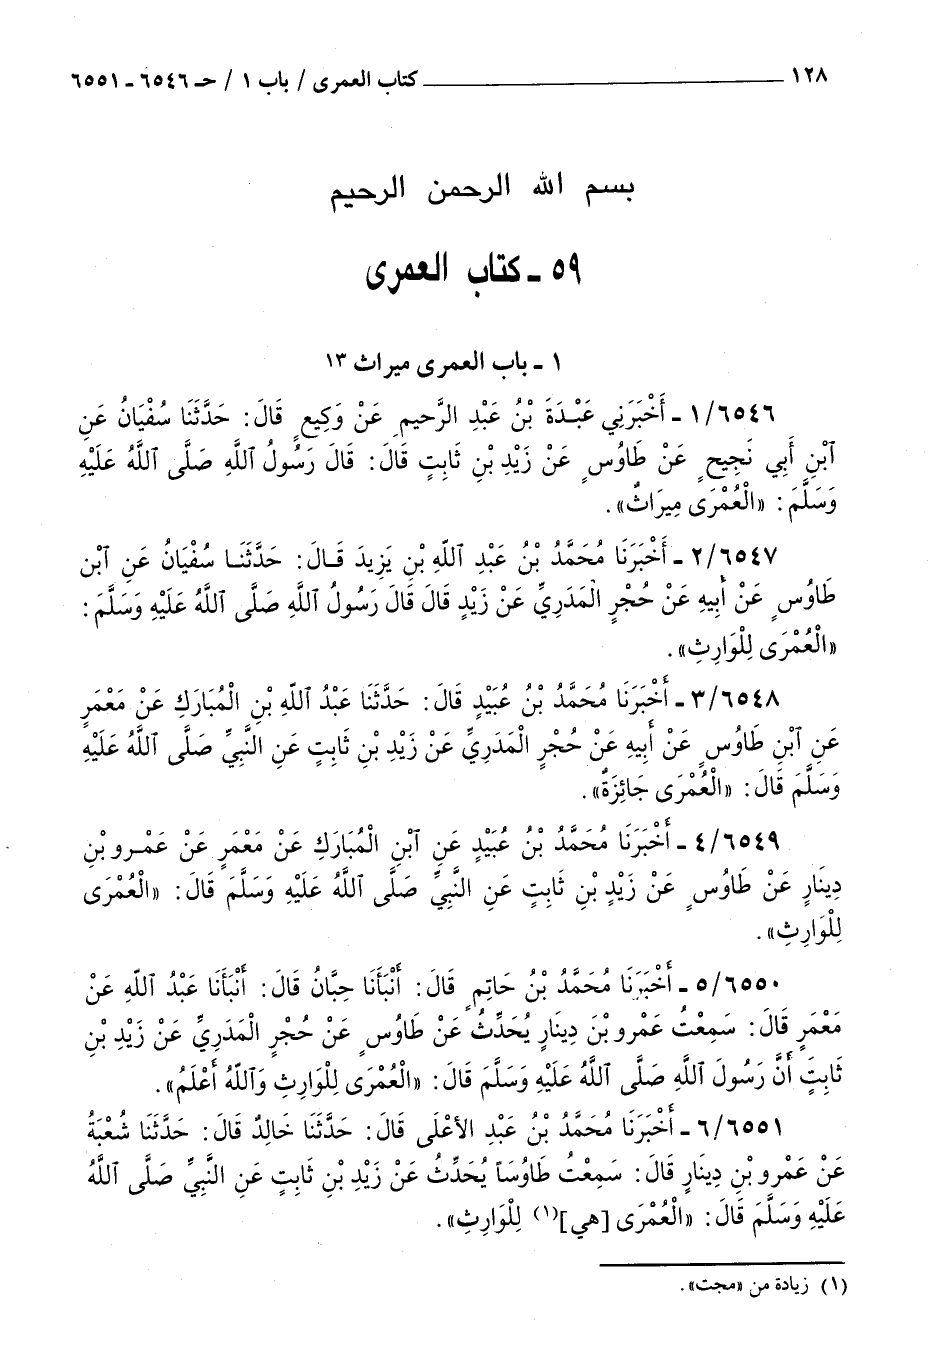 ١٢٨ كتاب العمرى / باب ١ / حـ ٦٥٤٦ ـ ٦٥٥١
بسم الله الرحمن الرحيم
٥٩ ـ كتاب العمرى
١ ـ باب العمرى ميراث ١٣
١/٦٥٤٦ ـ أَخْبَرَنِي عَبْدَةَ بْنُ عَبْدِ الرَّحيمِ عَنْ وَكِيعٍ قَالَ: حَدَّثَنَا سُفْيَانُ عَنِ
ٱبْنِ أَبِي نَجِيحٍ عَنْ طَاوُسٍ عَنْ زَيْدِ بْنِ ثَابِتٍ قَالَ: قَالَ رَسُولُ ٱللَّهِ صَلَّى ٱللَّهُ عَلَيْهِ
وَسَلَّمَ: «الْعُمْرَى مِيرَاثٌ».
٢/٦٥٤٧ ـ أَخْبَرَنَا مُحَمَّدُ بْنُ عَبْدِ ٱللّهِ بْنِ يَزِيدَ قَالَ: حَدَّثَنَا سُفْيَانُ عَنِ ٱبْنِ
طَاوُسٍ عَنْ أَبِيهِ عَنْ حُجْرٍ الْمَدَرِيِّ عَنْ زَيْدٍ قَالَ قَالَ رَسُولُ ٱللَّهِ صَلَّى ٱللَّهُ عَلَيْهِ وَسَلَّمَ:
«الْعُمْرَى لِلْوَارِثِ».
٣/٦٥٤٨ ـ أَخْبَرَنَا مُحَمَّدُ بْنُ عُبَيْدٍ قَالَ: حَدَّثَنَا عَبْدُ ٱللّهِ بْنِ الْمُبَارَكِ عَنْ مَعْمَرٍ
عَنِ ٱبْنِ طَاوُسٍ عَنْ أَبِيهِ عَنْ حُجْرٍ الْمَدَرِيِّ عَنْ زَيْدِ بْنِ ثَابِتٍ عَنِ النَّبِيِّ صَلَّى ٱللَّهُ عَلَيْهِ
وَسَلَّمَ قَالَ: «الْعُمْرَى جَائِزَةٌ».
٤/٦٥٤٩ ـ أَخْبَرَنَا مُحَمَّدُ بْنُ عُبَيْدٍ عَنِ ٱبْنِ الْمُبَارَكِ عَنْ مَعْمَرٍ عَنْ عَمْرِو بْنِ
دِينَارٍ عَنْ طَاوُسٍ عَنْ زَيْدِ بْنِ ثَابِتٍ عَنِ النَّبِيِّ صَلَّى ٱللَّهُ عَلَيْهِ وَسَلَّمَ قَالَ: «الْعُمْرَى
لِلْوَارِثِ».
٥/٦٥٥٠ ـ أَخْبَرَنَا مُحَمَّدُ بْنُ حَاتِمٍ قَالَ: أَنْبَأَنَا حِبَّانُ قَالَ: أَنْبَأَنَا عَبْدُ ٱللّهِ عَنْ
مَعْمَرٍ قَالَ: سَمِعْتُ عَمْرِو بْنَ دِينَارٍ يُحَدِّثُ عَنْ طَاوُسٍ عَنْ حُجْرٍ الْمَدَرِيِّ عَنْ زَيْدِ بْنِ
ثَابِتَ أَنَّ رَسُولَ ٱللَّهِ صَلَّى ٱللَّهُ عَلَيْهِ وَسَلَّمَ قَالَ: «الْعُمْرَى لِلْوَارِثِ وَٱللّهُ أَعْلَمُ».
٦/٦٥٥١ ـ أَخْبَرَنَا مُحَمَّدُ بْنُ عَبْدِ الأعْلَى قَالَ: حَدَّثَنَا خَالِدٌ قَالَ: حَدَّثَنَا شُعْبَةُ
عَنْ عَمْرِو بْنِ دِينَارٍ قَالَ: سَمِعْتُ طَاوُسَاً يُحَدِّثُ عَنْ زَيْدِ بْنِ ثَابِتٍ عَنِ النَّبِيِّ صَلَّى ٱللَّهُ
عَلَيْهِ وَسَلَّمَ قَالَ: «الْعُمْرَى [هي](١) لِلْوَارِثِ».
(١) زيادة من «مجت».